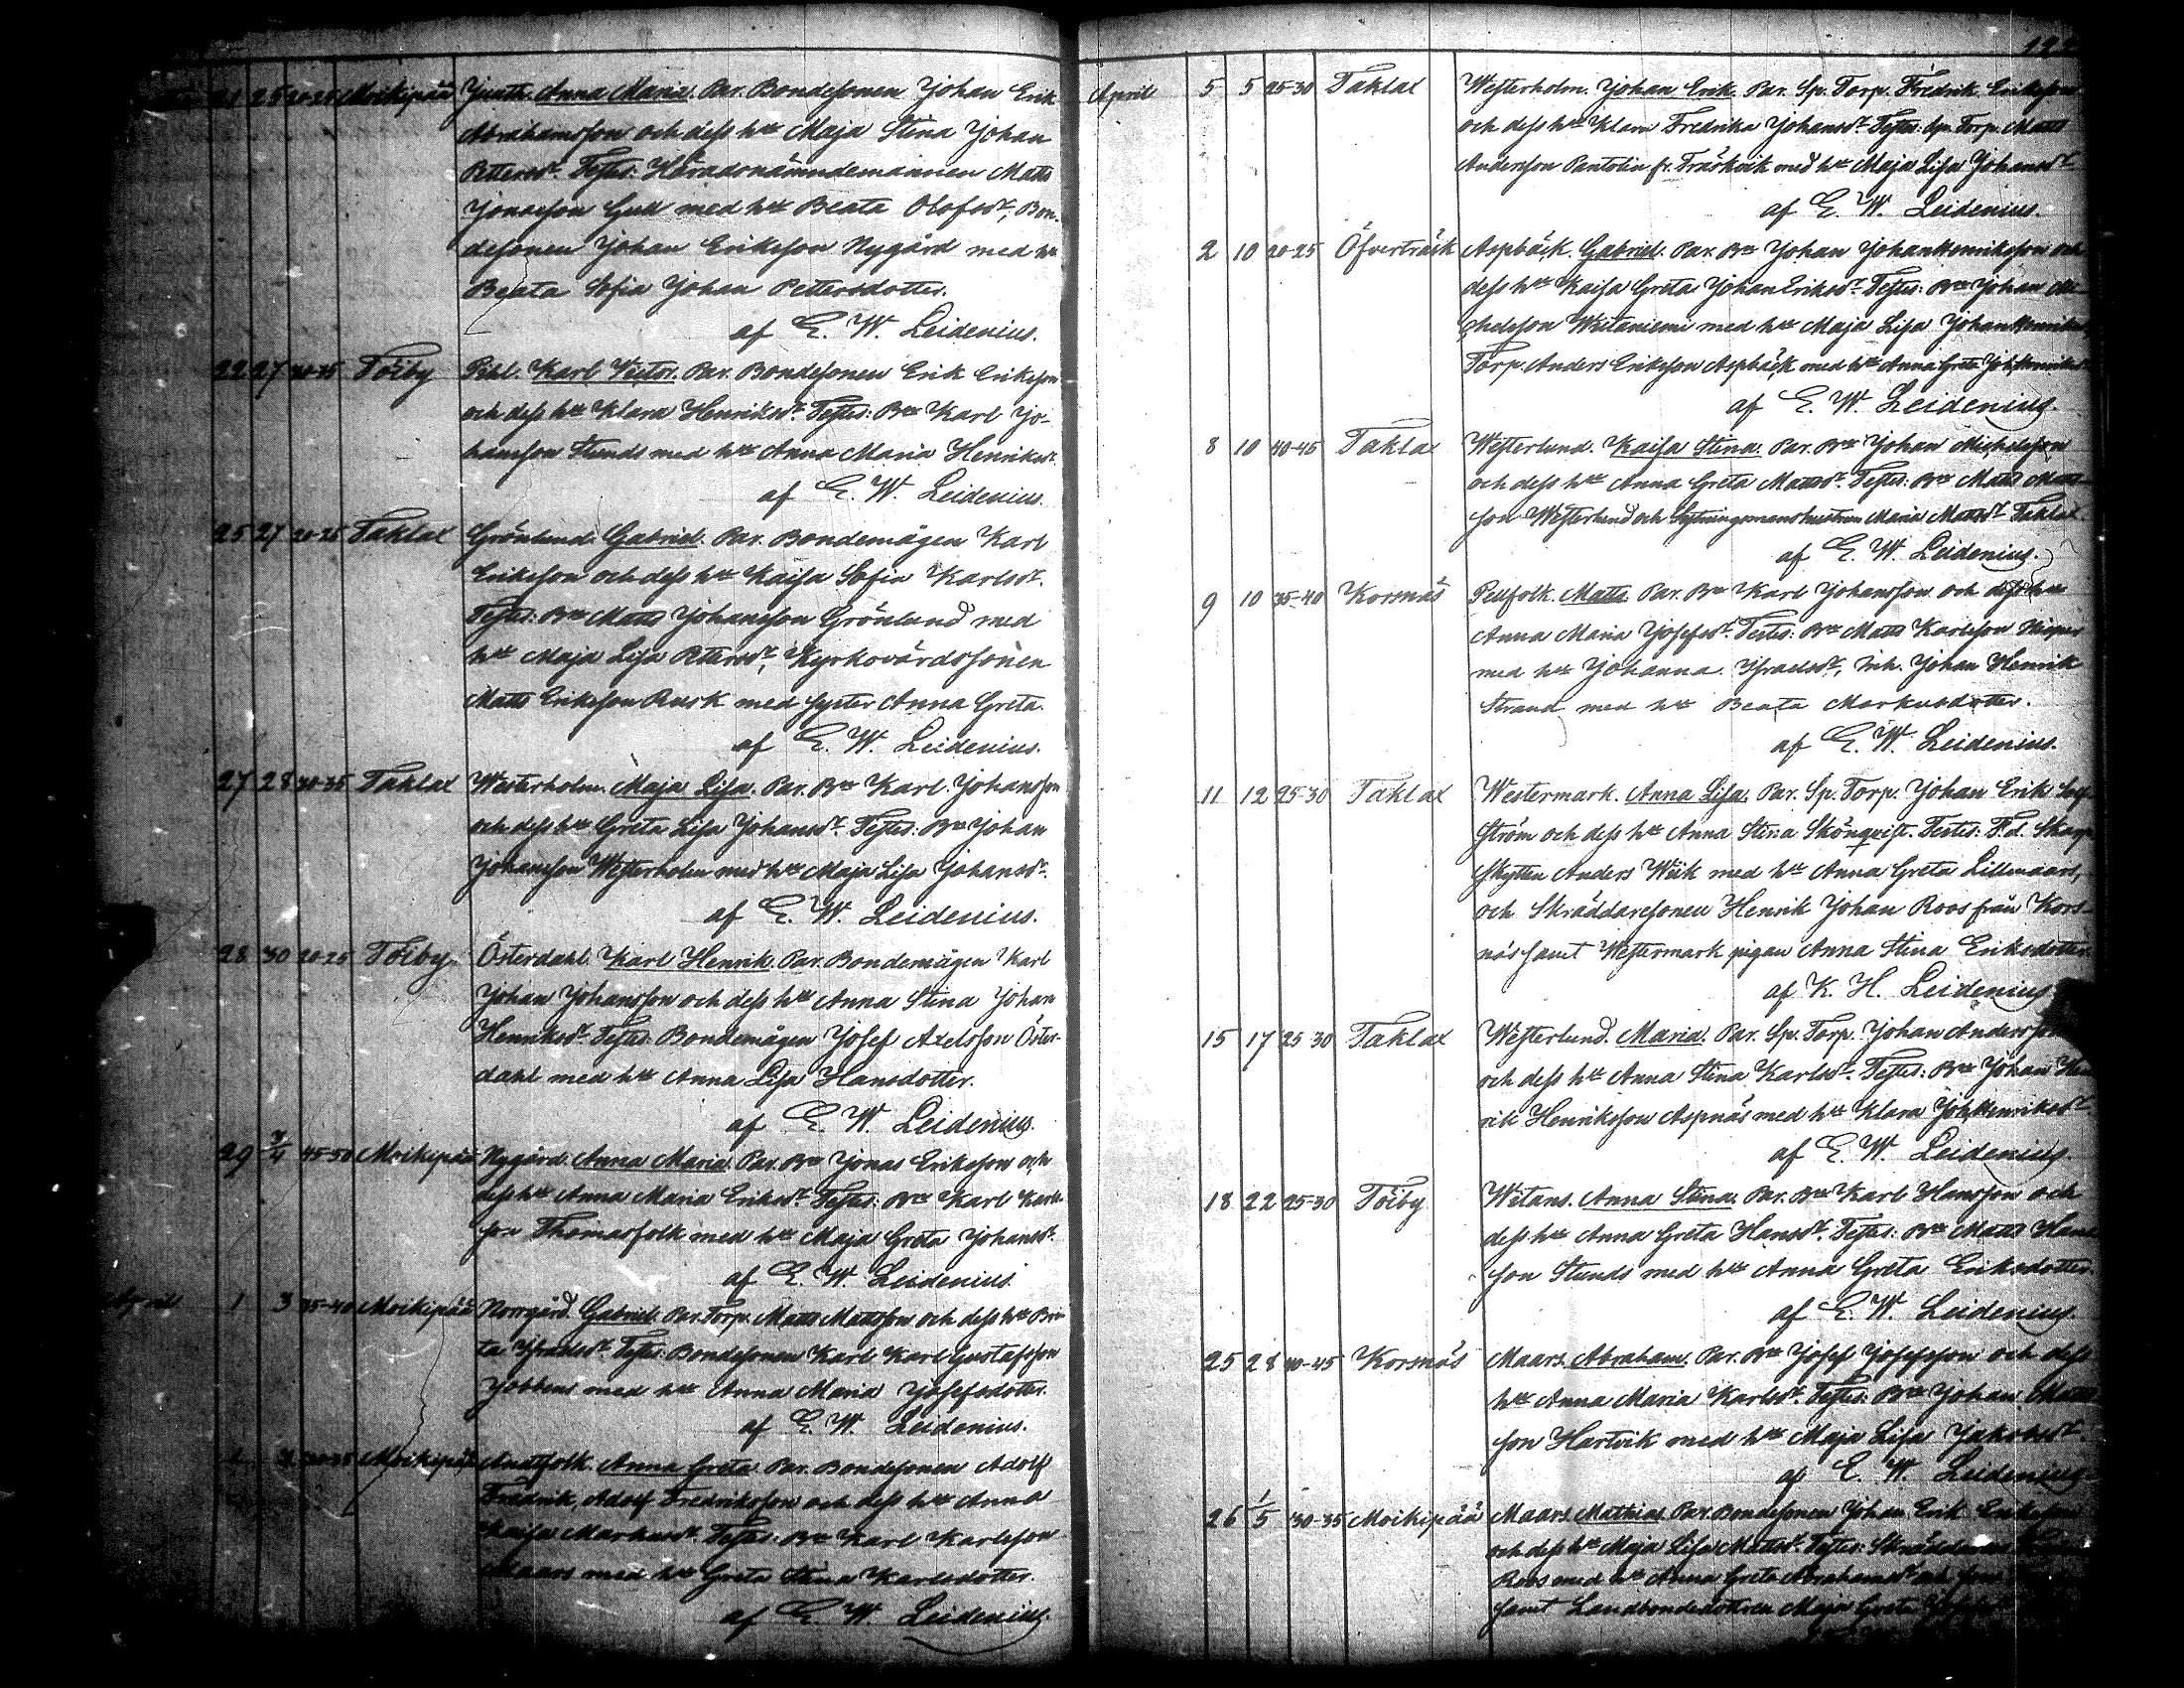 21 25 20-25 Moikipää Juath. Anna Maria. Par. Bondesonen Johan Erik
Abrahamsson och dess h:u Maja Stina Johan
Pettersd:r. Testes: Häradsnämndemannen Matts
Jonasson Gull med h:u Beata Olofsd:r, Bon-
desonen Johan Eriksson Nygård med h:u
Beata Sofia Johan Pettersdotter.
af E. W. Leidenius.
22 27 30-35 Töiby Pehl. Karl Victor. Par. Bondesonen Erik Eriksson
och dess h:u Klara Henriksd:r. Testes: B:n Karl Jo-
hansson Stunds med h:u Anna Maria Henriksd:r.
af E. W. Leidenius.
25 27 20-25 Taklax Grönlund. Gabriel. Par. Bondemågen Karl
Eriksson och dess h:u Kaisa Sofia Karlsd:r.
Testes: B:n Matts Johansson Grönlund med
h:u Maja Lisa Pettersd:r, Kyrkovärdssonen
Matts Eriksson Rusk med syster Anna Greta.
af E. W. Leidenius.
27 28 30-35 Taklax Westerholm. Maja Lisa. Par. B:n Karl Johansson
och dess h:u Greta Lisa Johansd:r. Testes: B:n Johan
Johansson Westerholm med h:u Maja Lisa Johansd:r.
af E. W. Leidenius.
28 30 20-25 Töiby Österdahl. Karl Henrik. Par. Bondemågen Karl
Johan Johansson och dess h:u Anna Stina Johan
Henriksd:r. Testes: Bondemågen Josef Axelsson Öster-
dahl med h:u Anna Lisa Hansdotter.
af E. W. Leidenius.
29 3/4 45-50 Moikipää Nygård. Anna Maria. Par. B:n Jonas Eriksson och
dess h:u Anna Maria Eriksd:r. Testes: B:n Karl Karls-
son Thomasfolk med h:u Maja Greta Johansd:r.
af E. W. Leidenius.
April 1 3 35-40 Moikipää Norrgård. Gabriel. Par. Torp. Matts Mattsson och dess h:u Bri-
ta Israelsd:r. Testes: Bondesonen Karl Karl Gustafsson
Jobbens med h:u Anna Maria Josefsdotter.
af E. W. Leidenius.
1 3 30-35 Moikipää Knutfolk. Anna Greta. Par. Bondesonen Adolf
Fredrik Adolf Fredriksson och dess h:u Anna
Kaisa Markusd:r. Testes: B:n Karl Karlsson
Maars med h:u Greta Stina Karlsdotter.
af E. W. Leidenius.
April 5 5 25-30 Taklax Westerholm. Johan Erik. Par. Sp. Torp. Fredrik Eriksson
och dess h:u Klara Fredrika Johansd:r. Testes: Sp. Torp. Matts
Andersson Pantolin fr. Träskvik med h:u Maja Lisa Johansd:r.
af E. W. Leidenius.
2 10 20-25 Öfverträsk Aspbäck. Gabriel. Par. B:n Johan Johan Henriksson och
dess h:u Kaisa Greta Johan Eriksd:r. Testes: B:n Johan Mi-
chelsson Witaniemi med h:u Maja Lisa Johan Henriksd:r,
Torp. Anders Eriksson Aspbäck med h:u Anna Greta Joh. Henriksd:r.
af E. W. Leidenius.
8 10 40-45 Taklax Westerlund. Kaisa Stina. Par. B:n Johan Michelsson
och dess h:u Anna Greta Mattsd:r. Testes: B:n Matts Matts-
son Westerlund och Sytningsmanshustrun Maria Mattsd:r Taklax.
af E. W. Leidenius.
9 10 35-40 Korsnäs Pellfolk. Matts. Par. B:n Karl Johansson och dess h:u
Anna Maria Josefsd:r. Testes: B:n Matts Karlsson
med h:u Johanna Israelsd:r, Inh. Johan Henrik
Strand med h:u Beata Markusdotter.
af E. W. Leidenius.
11 12 25-30 Taklax Westermark. Anna Lisa. Par. Sp. Torp. Johan Erik
ström och dess h:u Anna Stina Skönqvist. Testes: F.d. Skarp-
skytten Anders Wiik med h:u Anna Greta Lillemaars,
och Skräddaresonen Henrik Johan Roos från Kors-
näs samt Westermark pigan Anna Stina Eriksdotter.
af K. H. Leidenius
15 17 25-30 Taklax Westerlund. Maria. Par. Sp. Torp. Johan Andersson
och dess h:u Anna Stina Karlsd:r. Testes: B:n Johan Hen-
rik Henriksson Aspnäs med h:u Klara Joh. Henriksd:r.
af E. W. Leidenius.
18 22 25-30 Töiby Witans. Anna Stina. Par. B:n Karl Hansson och
dess h:u Anna Greta Hansd:r. Testes: B:n Matts Hans-
son Stunds med h:u Anna Greta Eriksdotter.
af E. W. Leidenius.
25 28 40-45 Korsnäs Maars. Abraham. Par. B:n Josef Josefsson och dess
h:u Anna Maria Karlsd:r. Testes: B:n Johan Matts-
son Hartvik med h:u Maja Lisa Jakobsd:r.
af E. W. Leidenius.
26 1/5 30-35 Moikipää Maars. Mathias. Par. Bondesonen Johan Erik Eriksson
och dess h:u Maja Lisa Mattsd:r. Testes:
Roos med h:u Anna Greta Abrahamsd:r
samt Landbondedottren Maja Greta